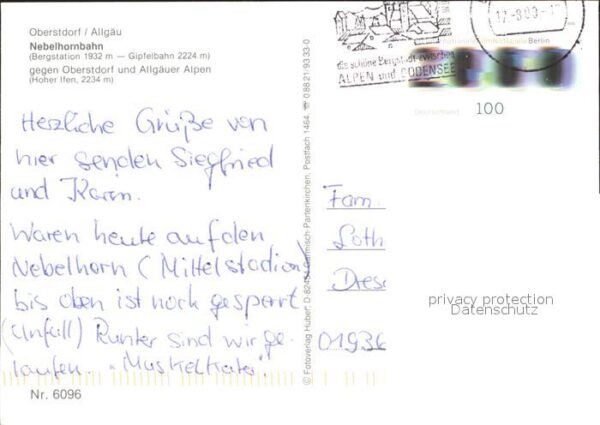 Oberstdorf / Allgäu
Nebelhornbahn
(Bergstation 1932 m — Gipfelbahn 2224 m)
gegen Oberstdorf und Allgäuer Alpen
(Hoher Ifen, 2234 m)
Herzliche Grüße von
hier senden Siegfried
und Karin.
Waren heute auf den
Nebelhorn (Mittelstadion)
bis oben ist noch gesperrt
(Unfall) Runter sind wir ge-
laufen. "Muskelkater"
Nr. 6096
© Fotoverlag Huber, Garmisch-Partenkirchen, Postfach 1464, ☎ 0 88 21-93 33-0
die schöne Bergstadt zwischen
ALPEN und BODENSEE
Berlin
Deutschland 100
Fam.
Loth
Dresd
01936
privacy protection
Datenschutz